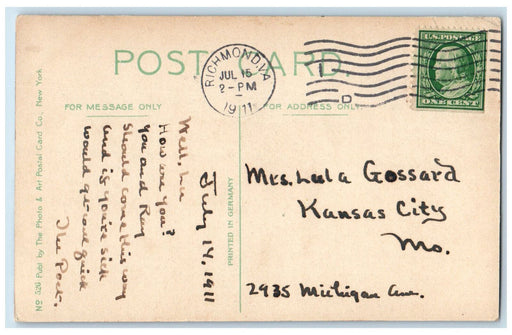 POST CARD
RICHMOND, VA
JUL 15
2 - PM
1911
D
U.S. POSTAGE
ONE CENT
FOR MESSAGE ONLY
FOR ADDRESS ONLY
No 520 Publ by The Photo & Art Postal Card Co. New York.
PRINTED IN GERMANY
July 14, 1911
Well, Lu
How are you?
You and Ray
Should come this way
and if you're sick
would get well quick
The Poet.
Mrs. Lula Gossard
Kansas City
Mo.
2935 Michigan Ave.